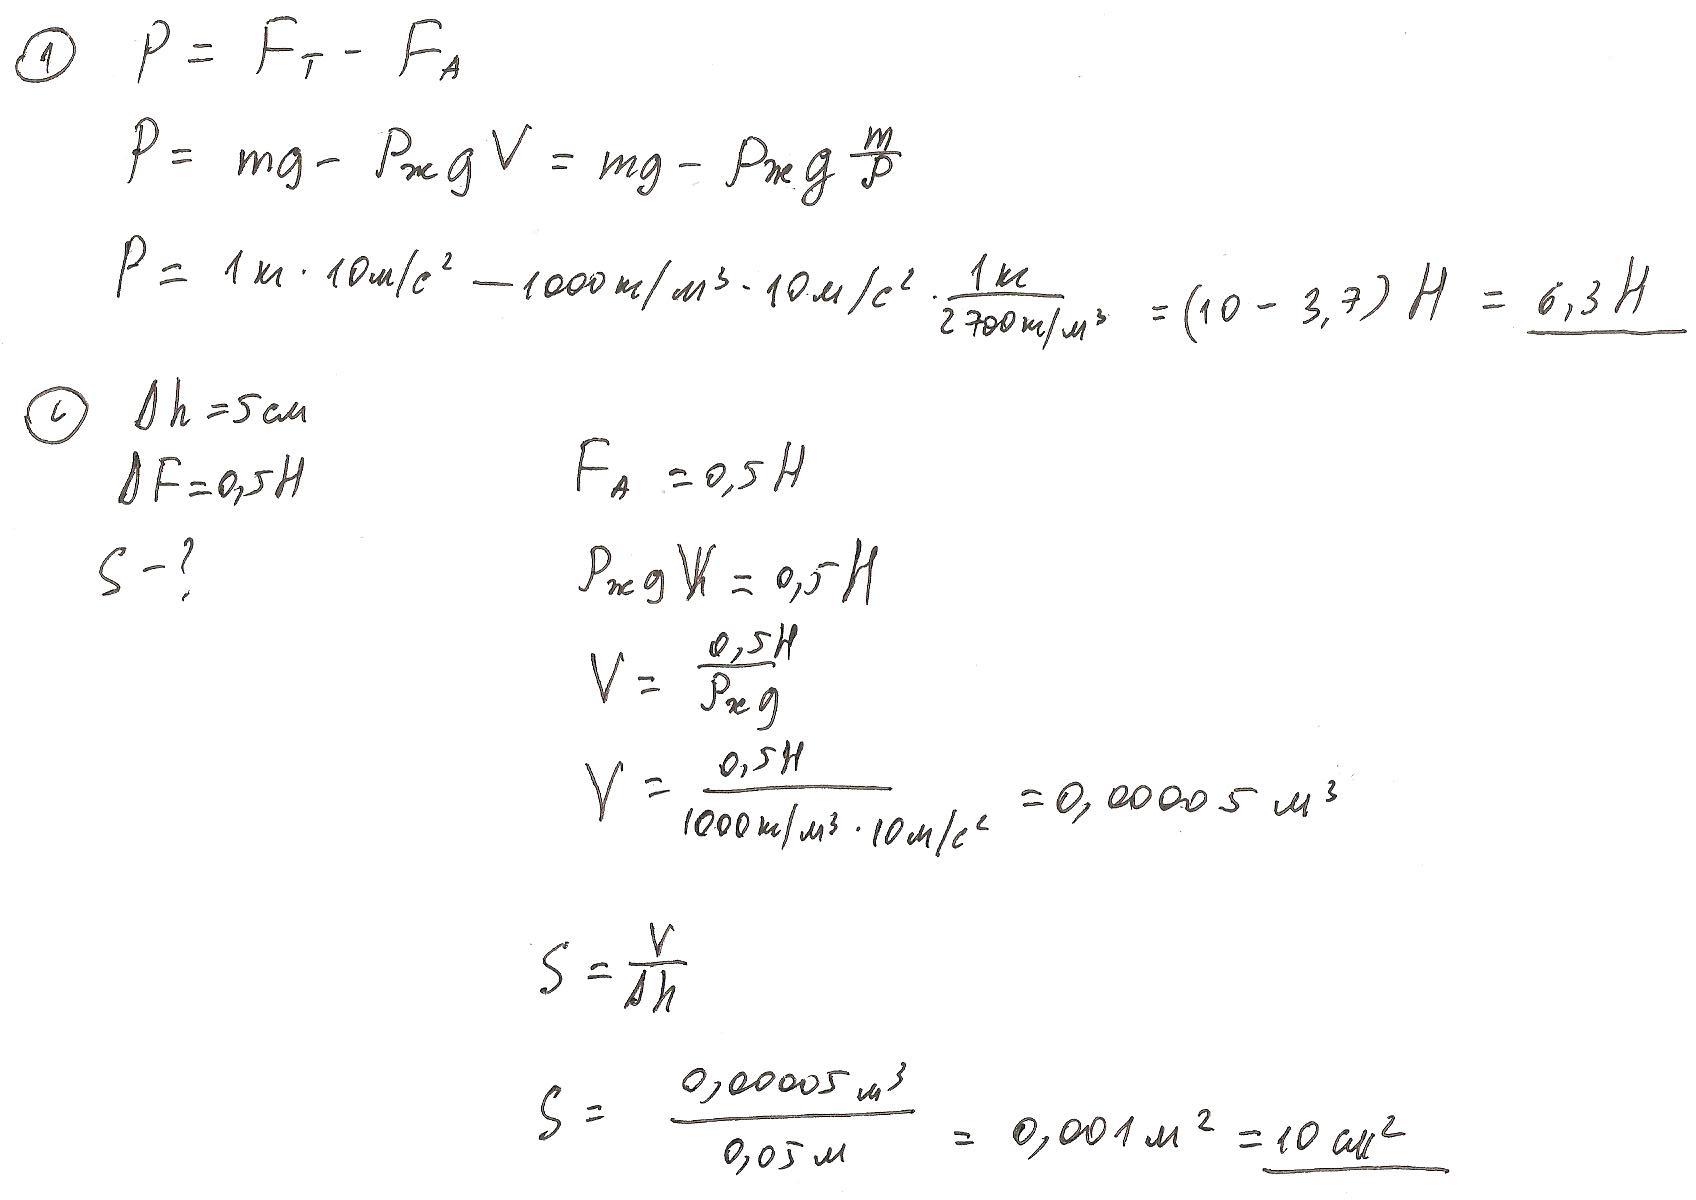 ① P = F_T - F_A
P = mg - ρ_ж g V = mg - ρ_ж g m/ρ
P = 1кг · 10м/с² - 1000кг/м³ · 10м/с² · 1кг/2700кг/м³ = (10 - 3,7) Н = 6,3 Н
② Δh = 5 см
ΔF = 0,5 Н
S - ?
F_A = 0,5 Н
ρ_ж g V = 0,5 Н
V = 0,5Н/ρ_ж g
V = 0,5Н/1000кг/м³ · 10м/с² = 0,00005 м³
S = V/Δh
S = 0,00005 м³/0,05 м = 0,001 м² = 10 см²